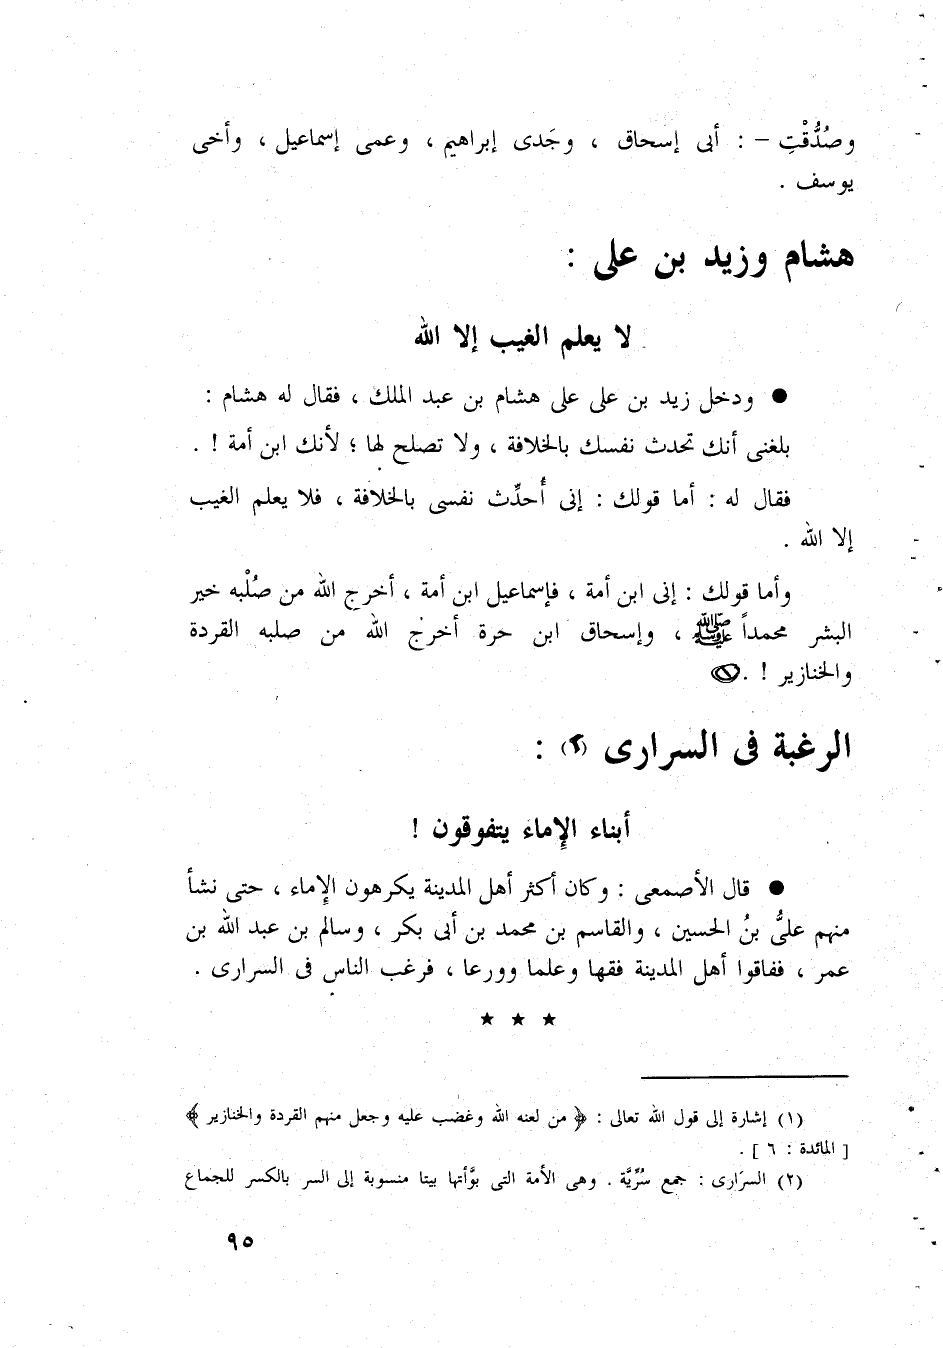 وصُدُّقْتِ – : أبى إسحاق ، وجَدى إبراهيم ، وعمى إسماعيل ، وأخى
يوسف .
هشام وزيد بن على :
لا يعلم الغيب إلا الله
● ودخل زيد بن على على هشام بن عبد الملك ، فقال له هشام :
بلغنى أنك تحدث نفسك بالخلافة ، ولا تصلح لها ؛ لأنك ابن أمة ! .
فقال له : أما قولك : إنى أُحدِّث نفسى بالخلافة ، فلا يعلم الغيب
إلا الله .
وأما قولك : إنى ابن أمة ، فإسماعيل ابن أمة ، أخرج الله من صُلْبه خير
البشر محمداً ﷺ ، وإسحاق ابن حرة أخرج الله من صلبه القردة
والخنازير ! . (١)
الرغبة فى السرارى (٢) :
أبناء الإماء يتفوقون !
● قال الأصمعى : وكان أكثر أهل المدينة يكرهون الإماء ، حتى نشأ
منهم علىُّ بنُ الحسين ، والقاسم بن محمد بن أبى بكر ، وسالم بن عبد الله بن
عمر ، ففاقوا أهل المدينة فقها وعلما وورعا ، فرغب الناس فى السرارى .
★ ★ ★
(١) إشارة إلى قول الله تعالى : ﴿ من لعنه الله وغضب عليه وجعل منهم القردة والخنازير ﴾
[ المائدة : ٦ ] .
(٢) السرَارى : جمع سُرِّيَّة . وهى الأمة التى بوَّأتها بيتا منسوبة إلى السر بالكسر للجماع
٩٥